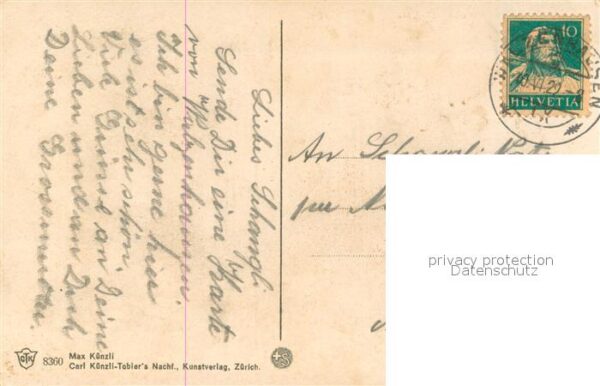 Liebes Schangli
Sende Dir eine Karte
von Walzenhausen
Ich bin gerne hier
es ist sehr schön
Viele Grüsse an Deine
Lieben und an Dich
Deine Grossmutter.
10
HELVETIA
An
per
privacy protection
Datenschutz
CTK
8360
Max Künzli
Carl Künzli-Tobler's Nachf., Kunstverlag, Zürich.